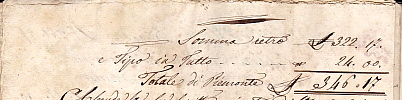 Somma retro £ 322. 17.
e Tipo in Tutto . . . . . . . " 24. 00.
Totale di Piemonte £ 346. 17